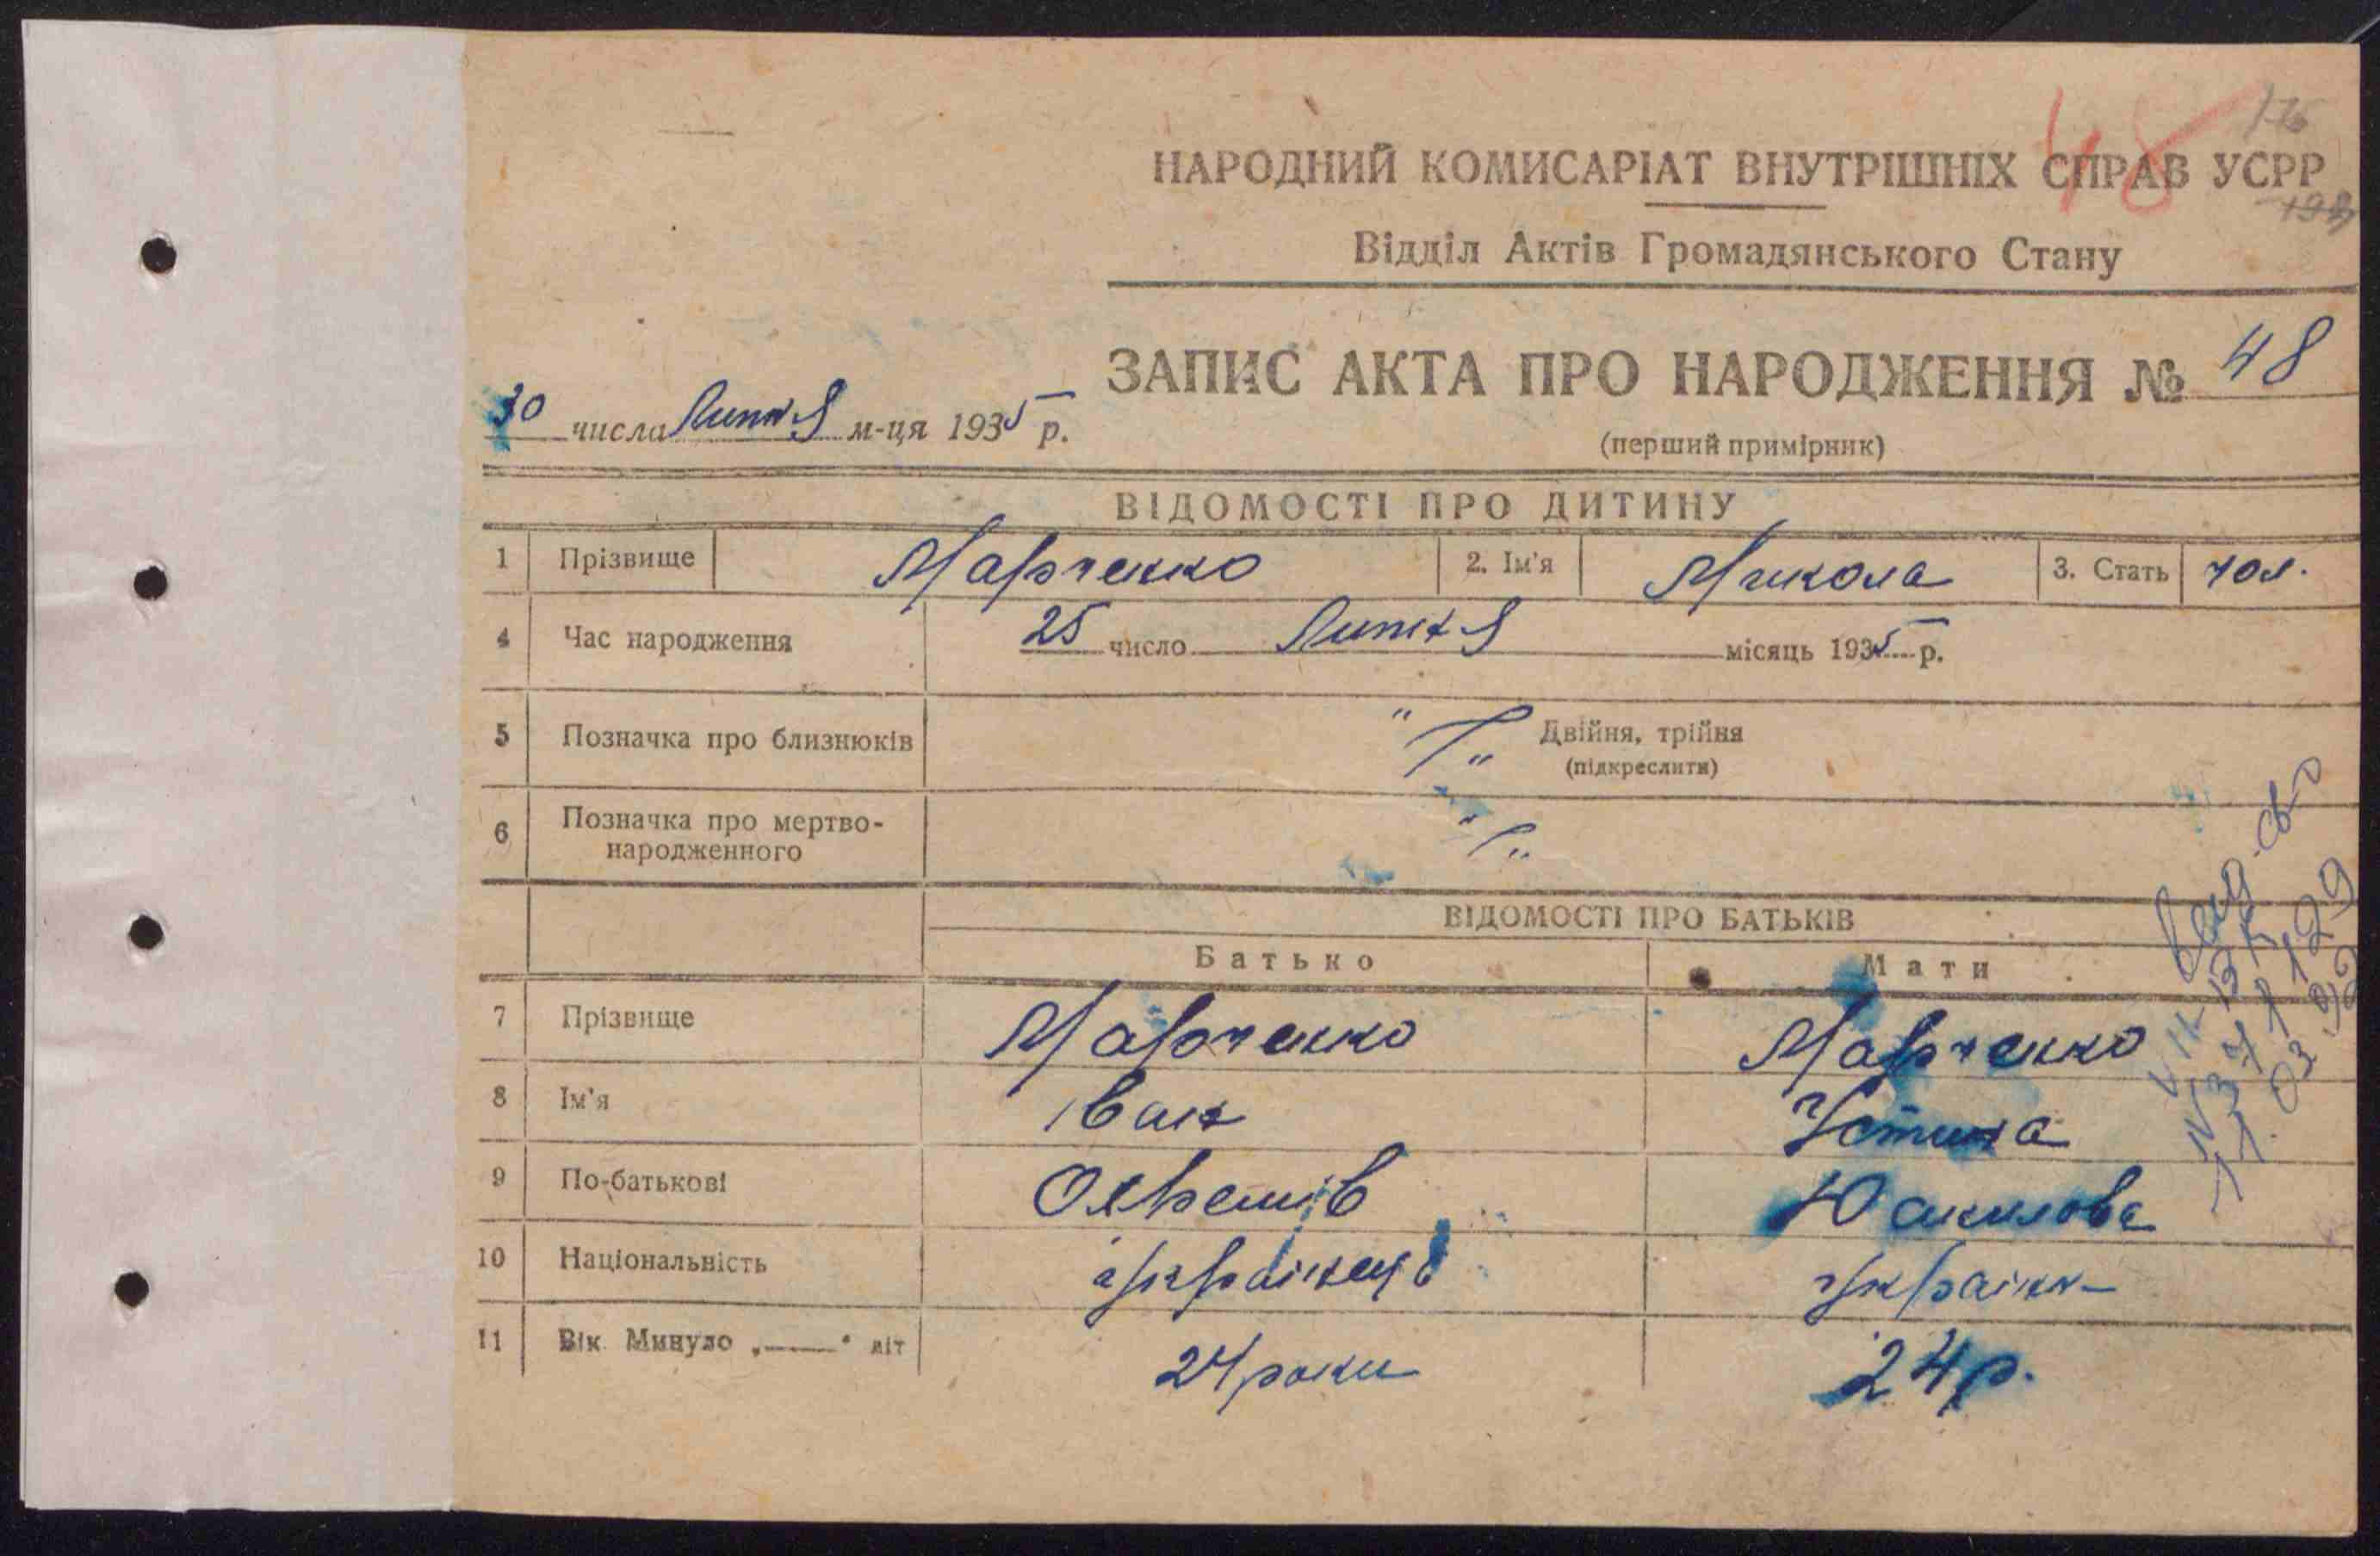 176
48
НАРОДНИЙ КОМИСАРІАТ ВНУТРІШНІХ СПРАВ УСРР
193
Відділ Актів Громадянського Стану
ЗАПИС АКТА ПРО НАРОДЖЕННЯ № 48
30 числа Липня м-ця 1935 р.
(перший примірник)
ВІДОМОСТІ ПРО ДИТИНУ
1 Прізвище Марченко 2. Ім'я Микола 3. Стать чол.
4 Час народження 25 число Липня місяць 1935 р.
5 Позначка про близнюків Двійня, трійня
(підкреслити)
6 Позначка про мертво-
народженного
ВІДОМОСТІ ПРО БАТЬКІВ
Батько Мати
7 Прізвище Марченко Марченко
8 Ім'я Іван Устина
9 По-батькові Юхимова
10 Національність українець українк
11 Вік. Минуло „——“ літ 24 роки 24 р.